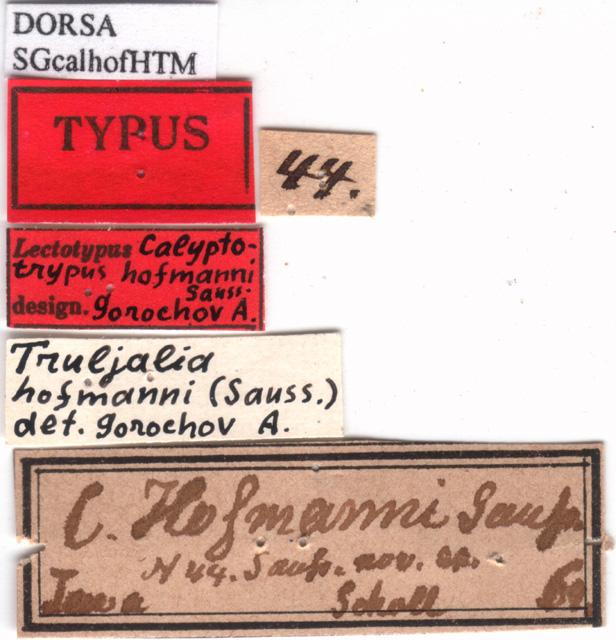 DORSA
SGcalhofHTM
TYPUS
44.
Lectotypus Calypto-
trypus hofmanni
Sauss.
design. Gorochov A.
Truljalia
hofmanni (Sauss.)
det. Gorochov A.
C. Hofmanni Sauss
N 44. Sauss. nov. sp.
Scholl